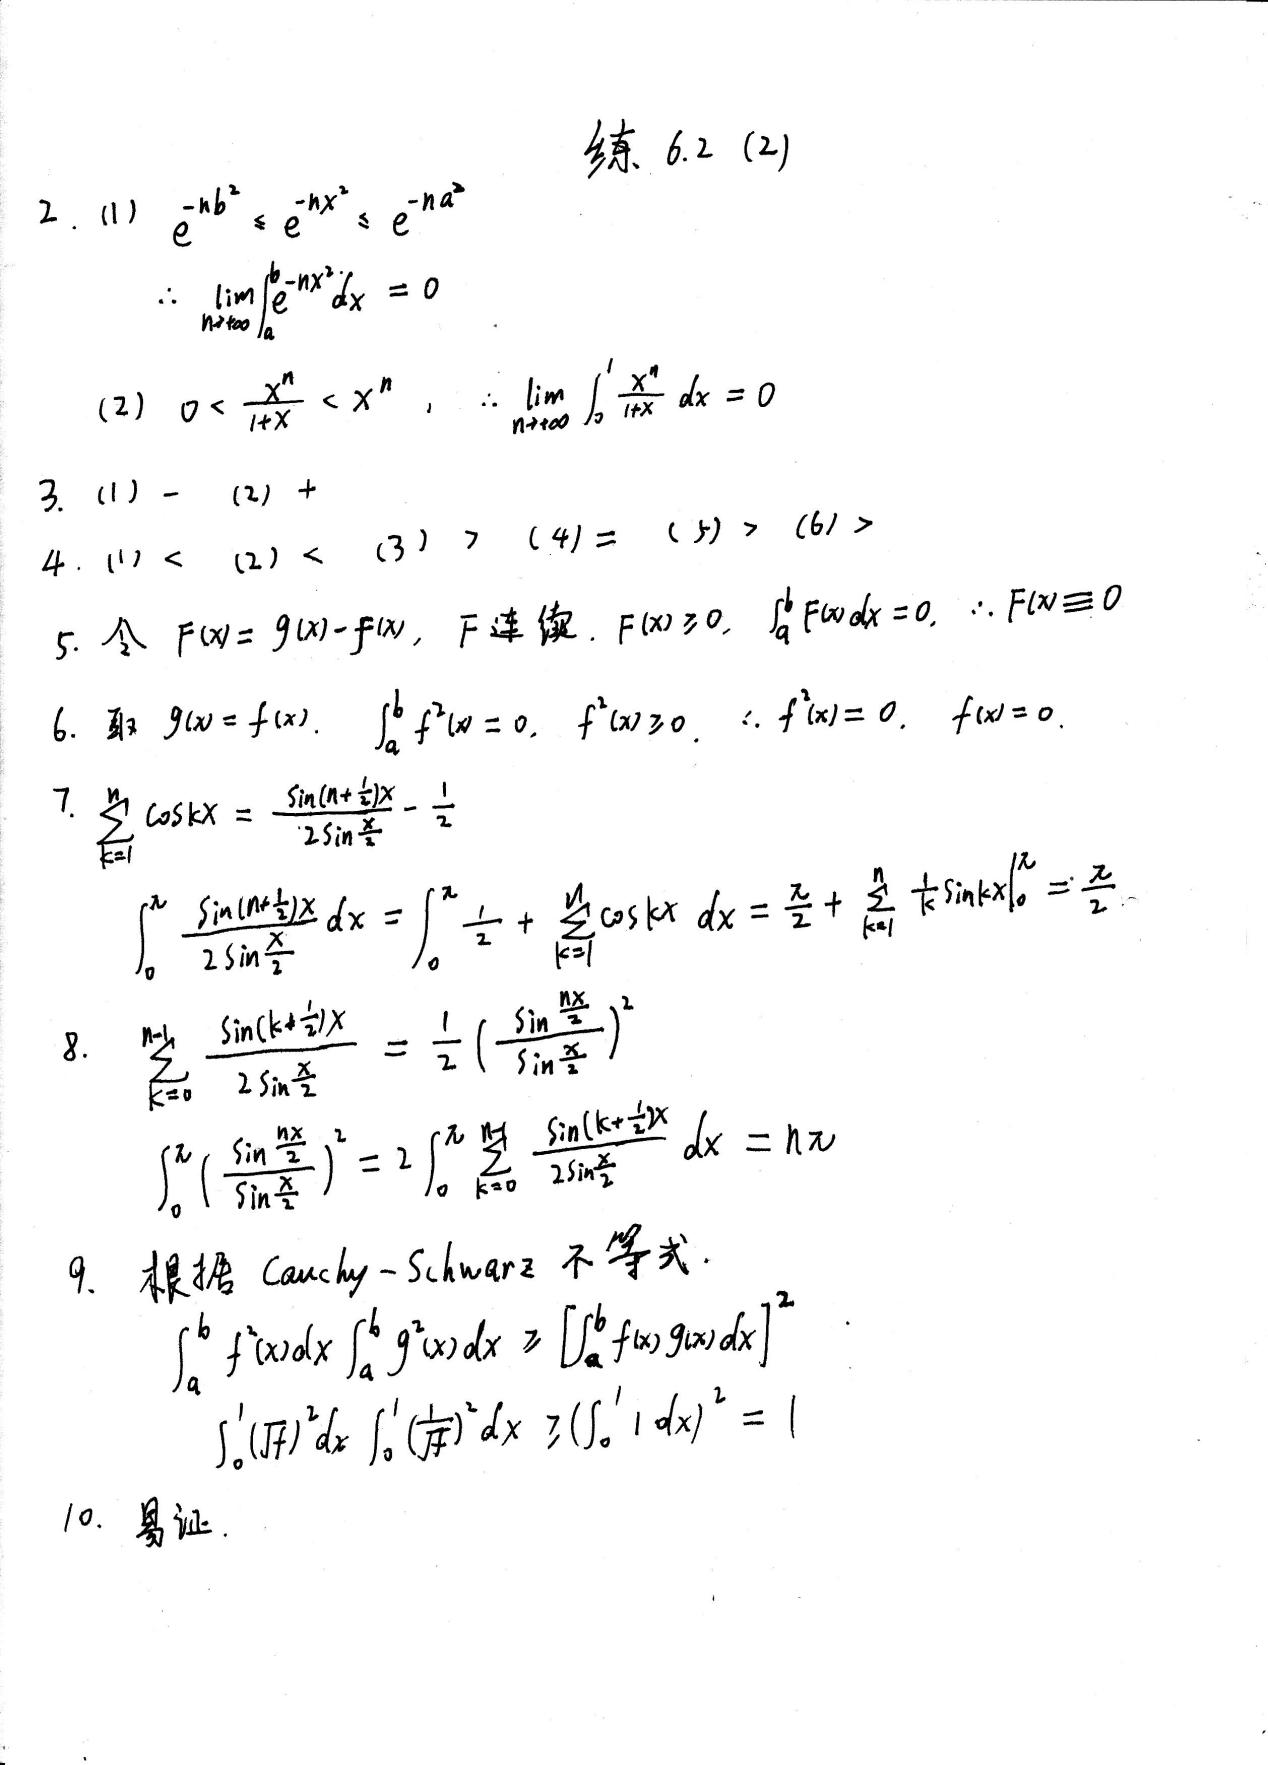 练 6.2 (2)
2. (1) e^{-nb²} ≤ e^{-nx²} ≤ e^{-na²}
∴ lim_{n→+∞} ∫_a^b e^{-nx²} dx = 0
(2) 0 < x^n/(1+x) < x^n, ∴ lim_{n→+∞} ∫_0^1 x^n/(1+x) dx = 0
3. (1) - (2) +
4. (1) < (2) < (3) > (4) = (5) > (6) >
5. 令 F(x) = g(x) - f(x), F 连续. F(x) ≥ 0, ∫_a^b F(x) dx = 0, ∴ F(x) ≡ 0
6. 取 g(x) = f(x). ∫_a^b f²(x) = 0, f²(x) ≥ 0. ∴ f²(x) = 0. f(x) = 0.
7. Σ_{k=1}^n coskx = sin(n+1/2)x / (2sin x/2) - 1/2
∫_0^π sin(n+1/2)x / (2sin x/2) dx = ∫_0^π 1/2 + Σ_{k=1}^n coskx dx = π/2 + Σ_{k=1}^n 1/k sinkx |_0^π = π/2.
8. Σ_{k=0}^{n-1} sin(k+1/2)x / (2sin x/2) = 1/2 (sin nx/2 / sin x/2)²
∫_0^π (sin nx/2 / sin x/2)² = 2 ∫_0^π Σ_{k=0}^{n-1} sin(k+1/2)x / (2sin x/2) dx = nπ
9. 根据 Cauchy-Schwarz 不等式.
∫_a^b f²(x)dx ∫_a^b g²(x)dx ≥ [∫_a^b f(x)g(x)dx]²
∫_0^1 (√f)² dx ∫_0^1 (1/√f)² dx ≥ (∫_0^1 1 dx)² = 1
10. 易证.